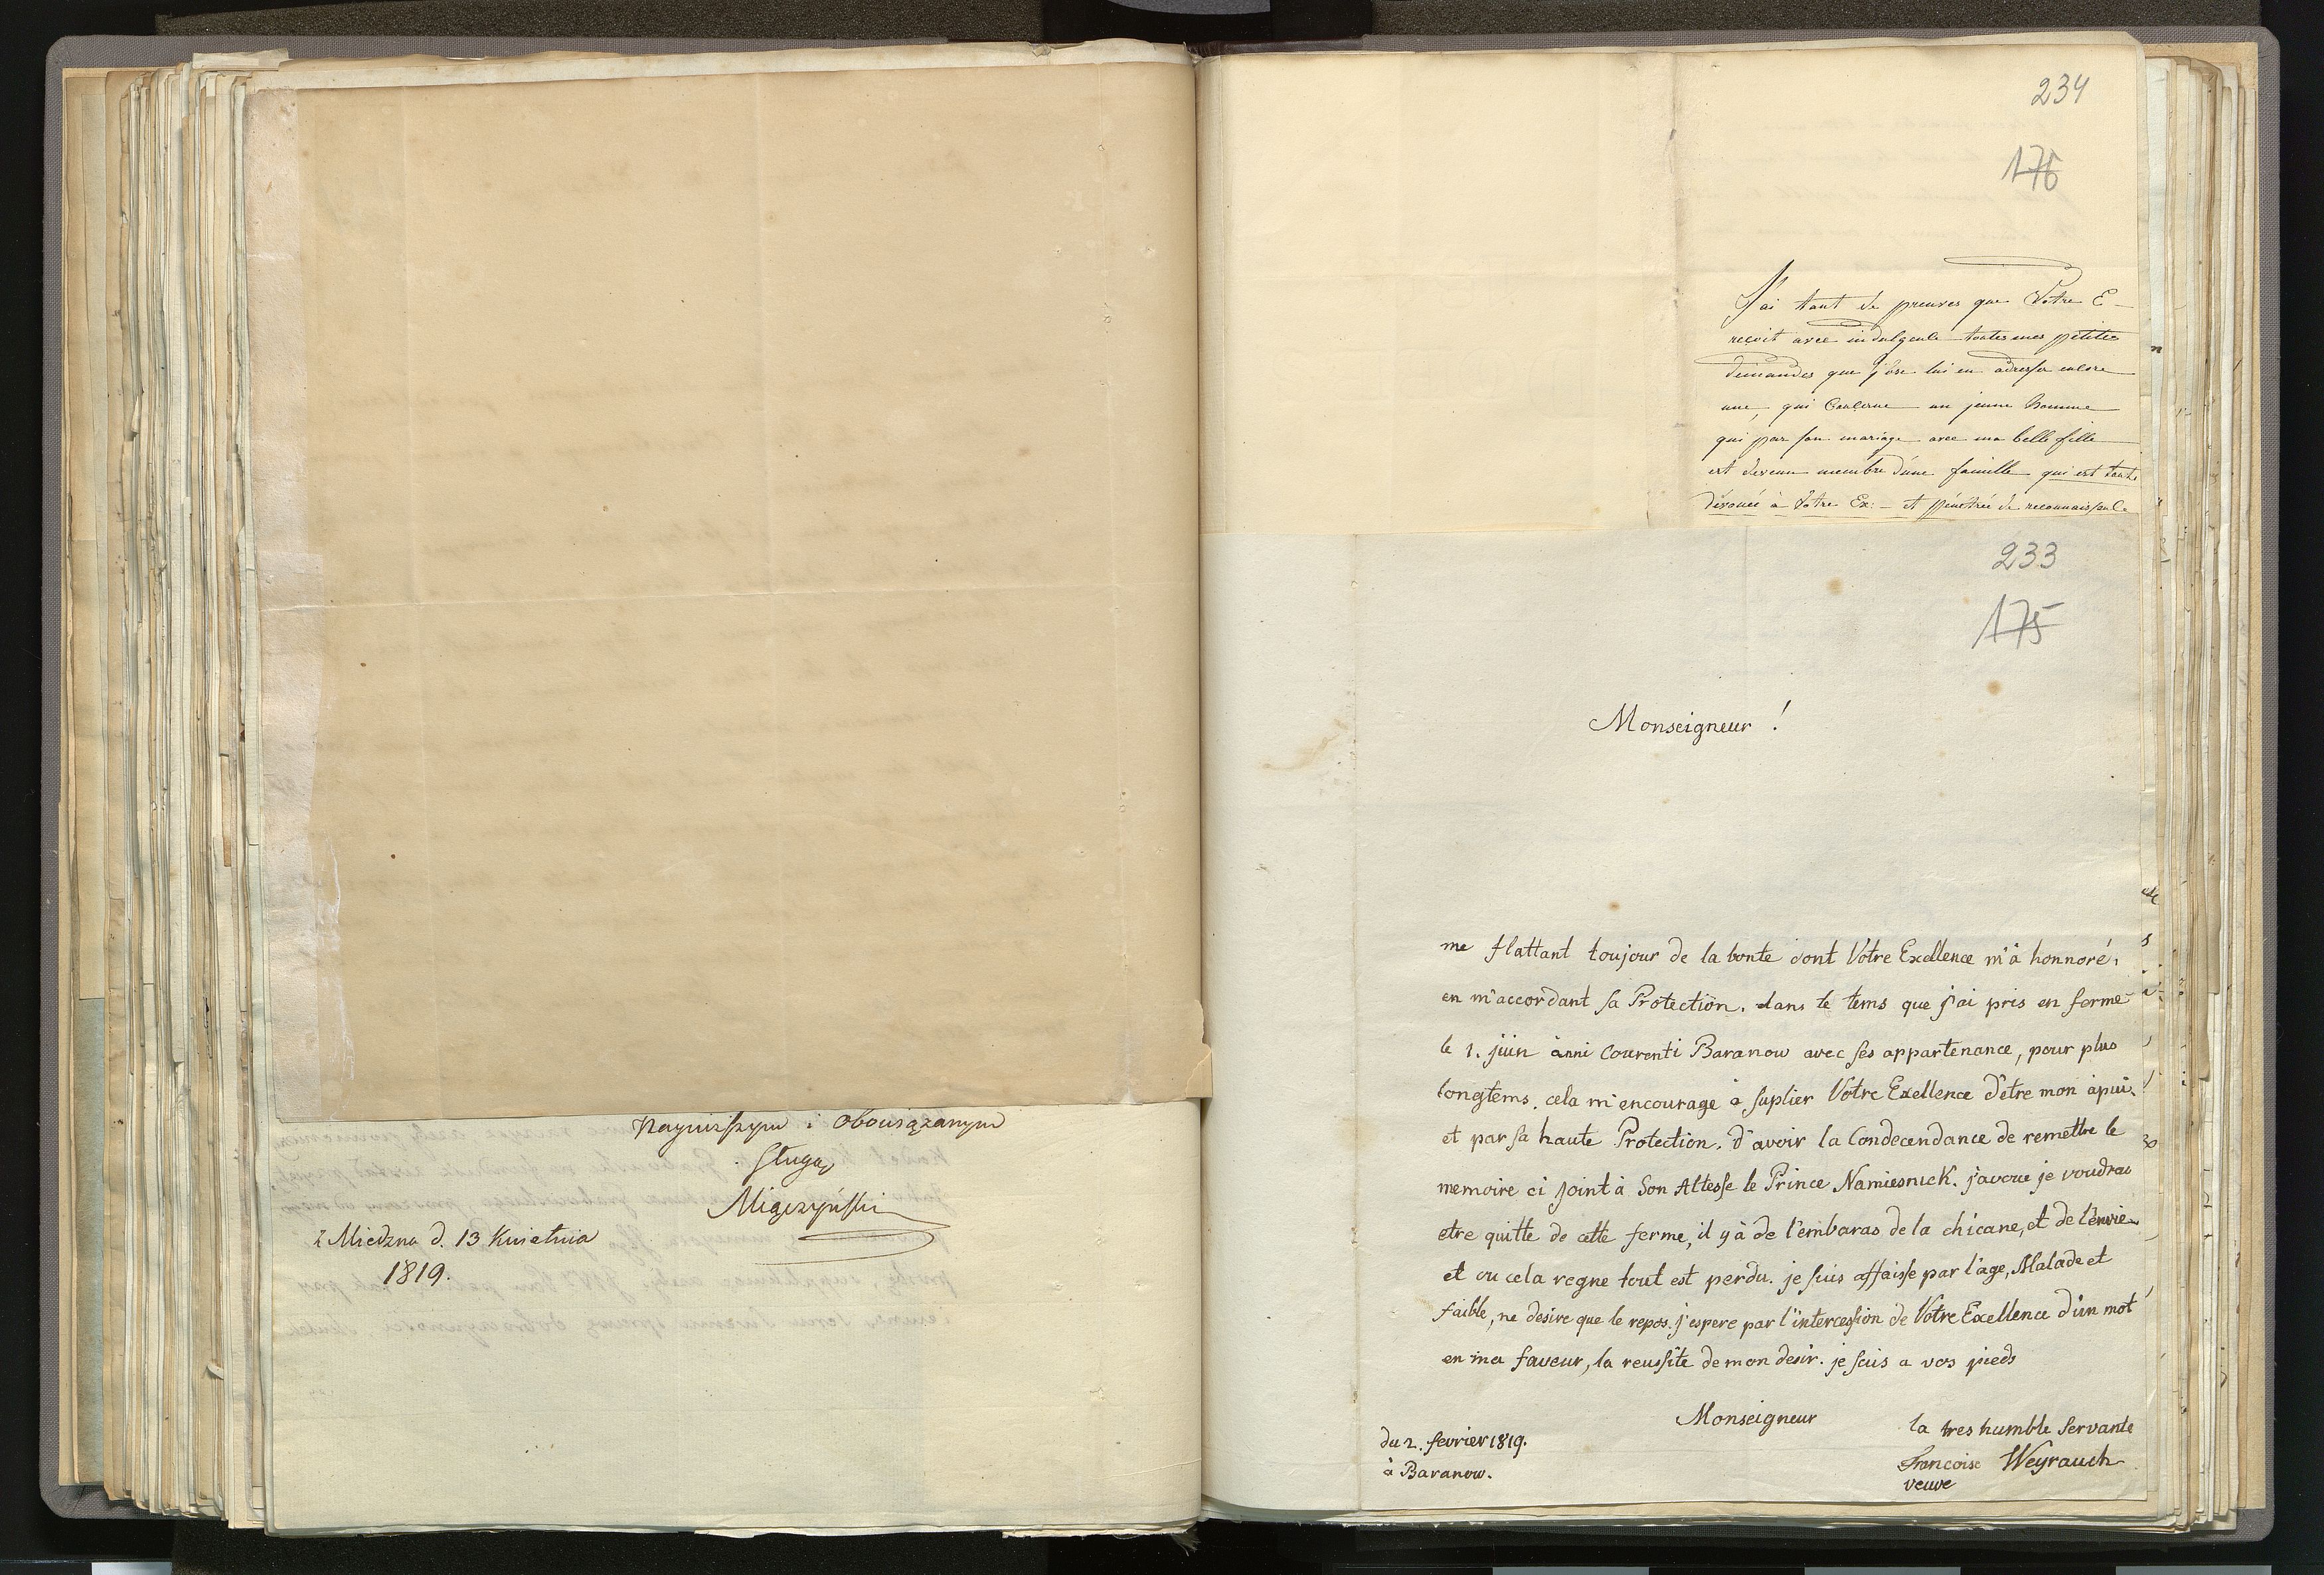 Nayniższym i obowiązanym
Sługą
Miączyński
z Miedzna d. 13 Kwietnia
1819.
234
176
J'ai tant de preuves que Votre E-
reçoit avec indulgence toutes mes petites
demandes que j'ose lui en adresser encore
une, qui Concerne un jeune homme
qui par son mariage avec ma belle fille
est devenu membre d'une famille qui est toute
dévouée à Votre Ex: - et pénétrée de reconnaissance
233
175
Monseigneur !
me flattant toujour de la bonte dont Votre Exellence m'à honnoré,
en m'accordant sa Protection. dans le tems que j'ai pris en ferme
le 1. jüin anni Courenti Baranow avec ses appartenance, pour plus
longtems. cela m'encourage a suplier Votre Exellence d'etre mon apui.
et par sa haute Protection. d'avoir la Condecendance de remettre le
memoire ci joint à Son Altesse le Prince Namiesnick. j'avoue je voudrai
etre quitte de cette ferme, il y à de l'embaras de la chicane, et de l'envie
et ou cela regne tout est perdu. je suis affaisse par l'age, Malade et
faible, ne desire que le repos. j'espere par l'intercession de Votre Exellence d'un mot
en ma faveur, la reussite de mon desir. je suis a vos pieds
Monseigneur
la tres humble Servante
du 2. fevrier 1819.
Francoise Weyrauch
à Baranow.
veuve